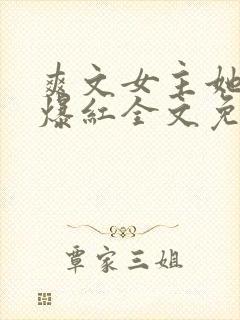 爽文女主她
爆红全文免
覃家三姐